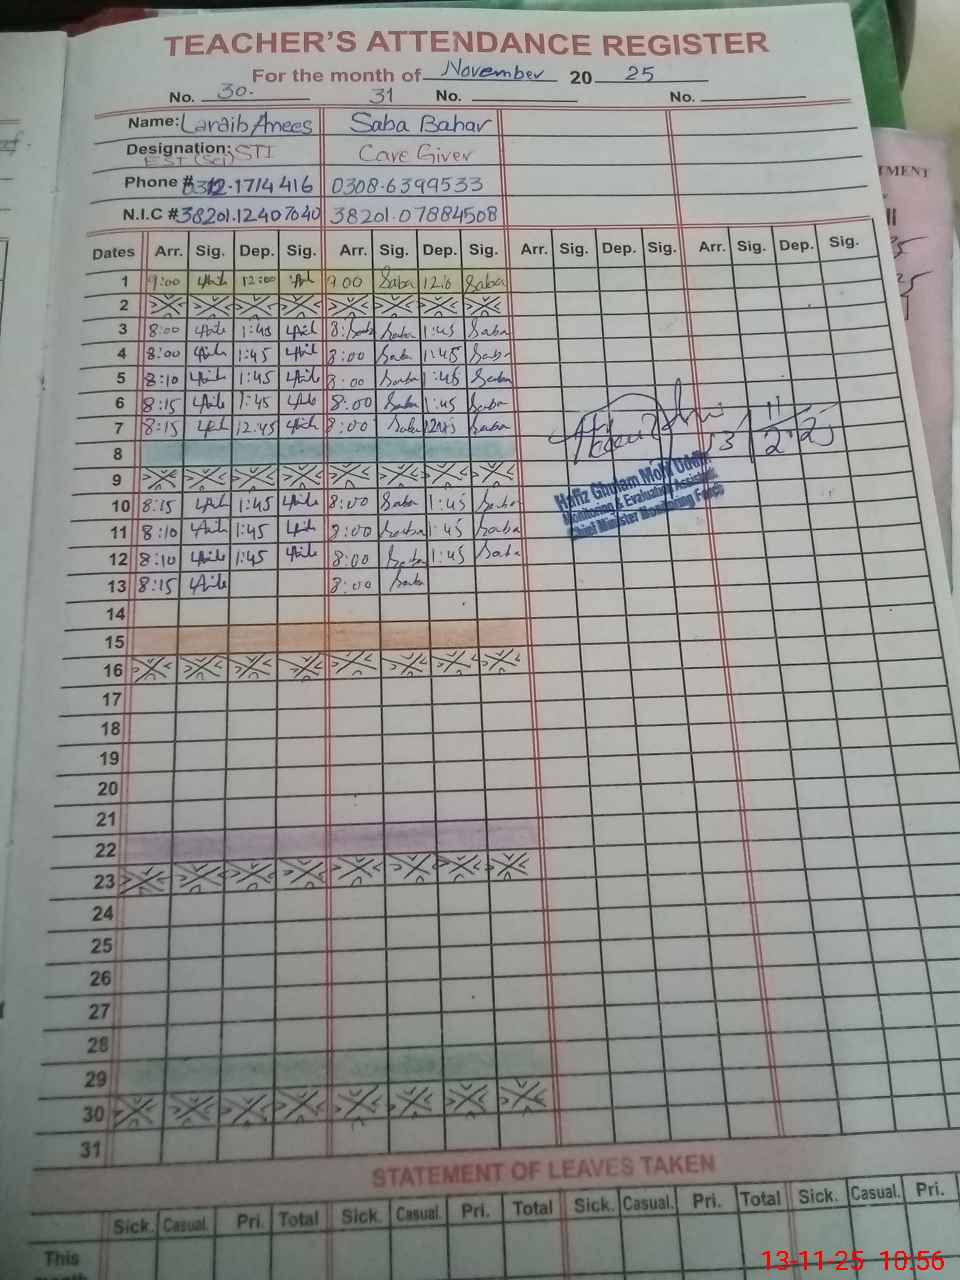 TEACHER'S ATTENDANCE REGISTER
For the month of November 20 25
No. 30. 31 No. No.
Name: Laraib Anees Saba Bahar
Designation: STI Care Giver
EST (Sci)
Phone # 0312-1714416 0308-6399533
N.I.C # 38201.12407640 38201.07884508
Dates Arr. Sig. Dep. Sig. Arr. Sig. Dep. Sig. Arr. Sig. Dep. Sig. Arr. Sig. Dep. Sig.
1 9:00 12:00 9 00 Saba Saba
2
3 8:00 1:45 Saba 1:45 Saba
4 8:00 1:45 8:00 Saba 1:45 Saba
5 8:10 1:45 8:00 Saba 1:45 Saba
6 8:15 1:45 8:00 Saba 1:45 Saba
7 8:15 12:45 8:00 Saba Saba
8
9
10 8:15 1:45 8:00 Saba 1:45 Saba
11 8:10 1:45 8:00 Saba 1:45 Saba
12 8:10 1:45 8:00 Saba 1:45 Saba
13 8:15 8:00 Saba
14
15
16
17
18
19
20
21
22
23
24
25
26
27
28
29
30
31
Hafiz Ghulam Mohy Uddin
Monitoring & Evaluation Assistant
Chief Minister Monitoring Force
STATEMENT OF LEAVES TAKEN
Sick. Casual. Pri. Total Sick. Casual. Pri. Total Sick. Casual. Pri. Total Sick. Casual. Pri.
This
month
13-11-25 10:56